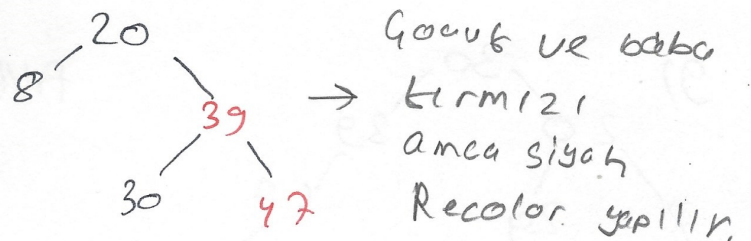 20
8
39
30
47
→ Çocuk ve baba
kırmızı
amca siyah
Recolor yapılır.